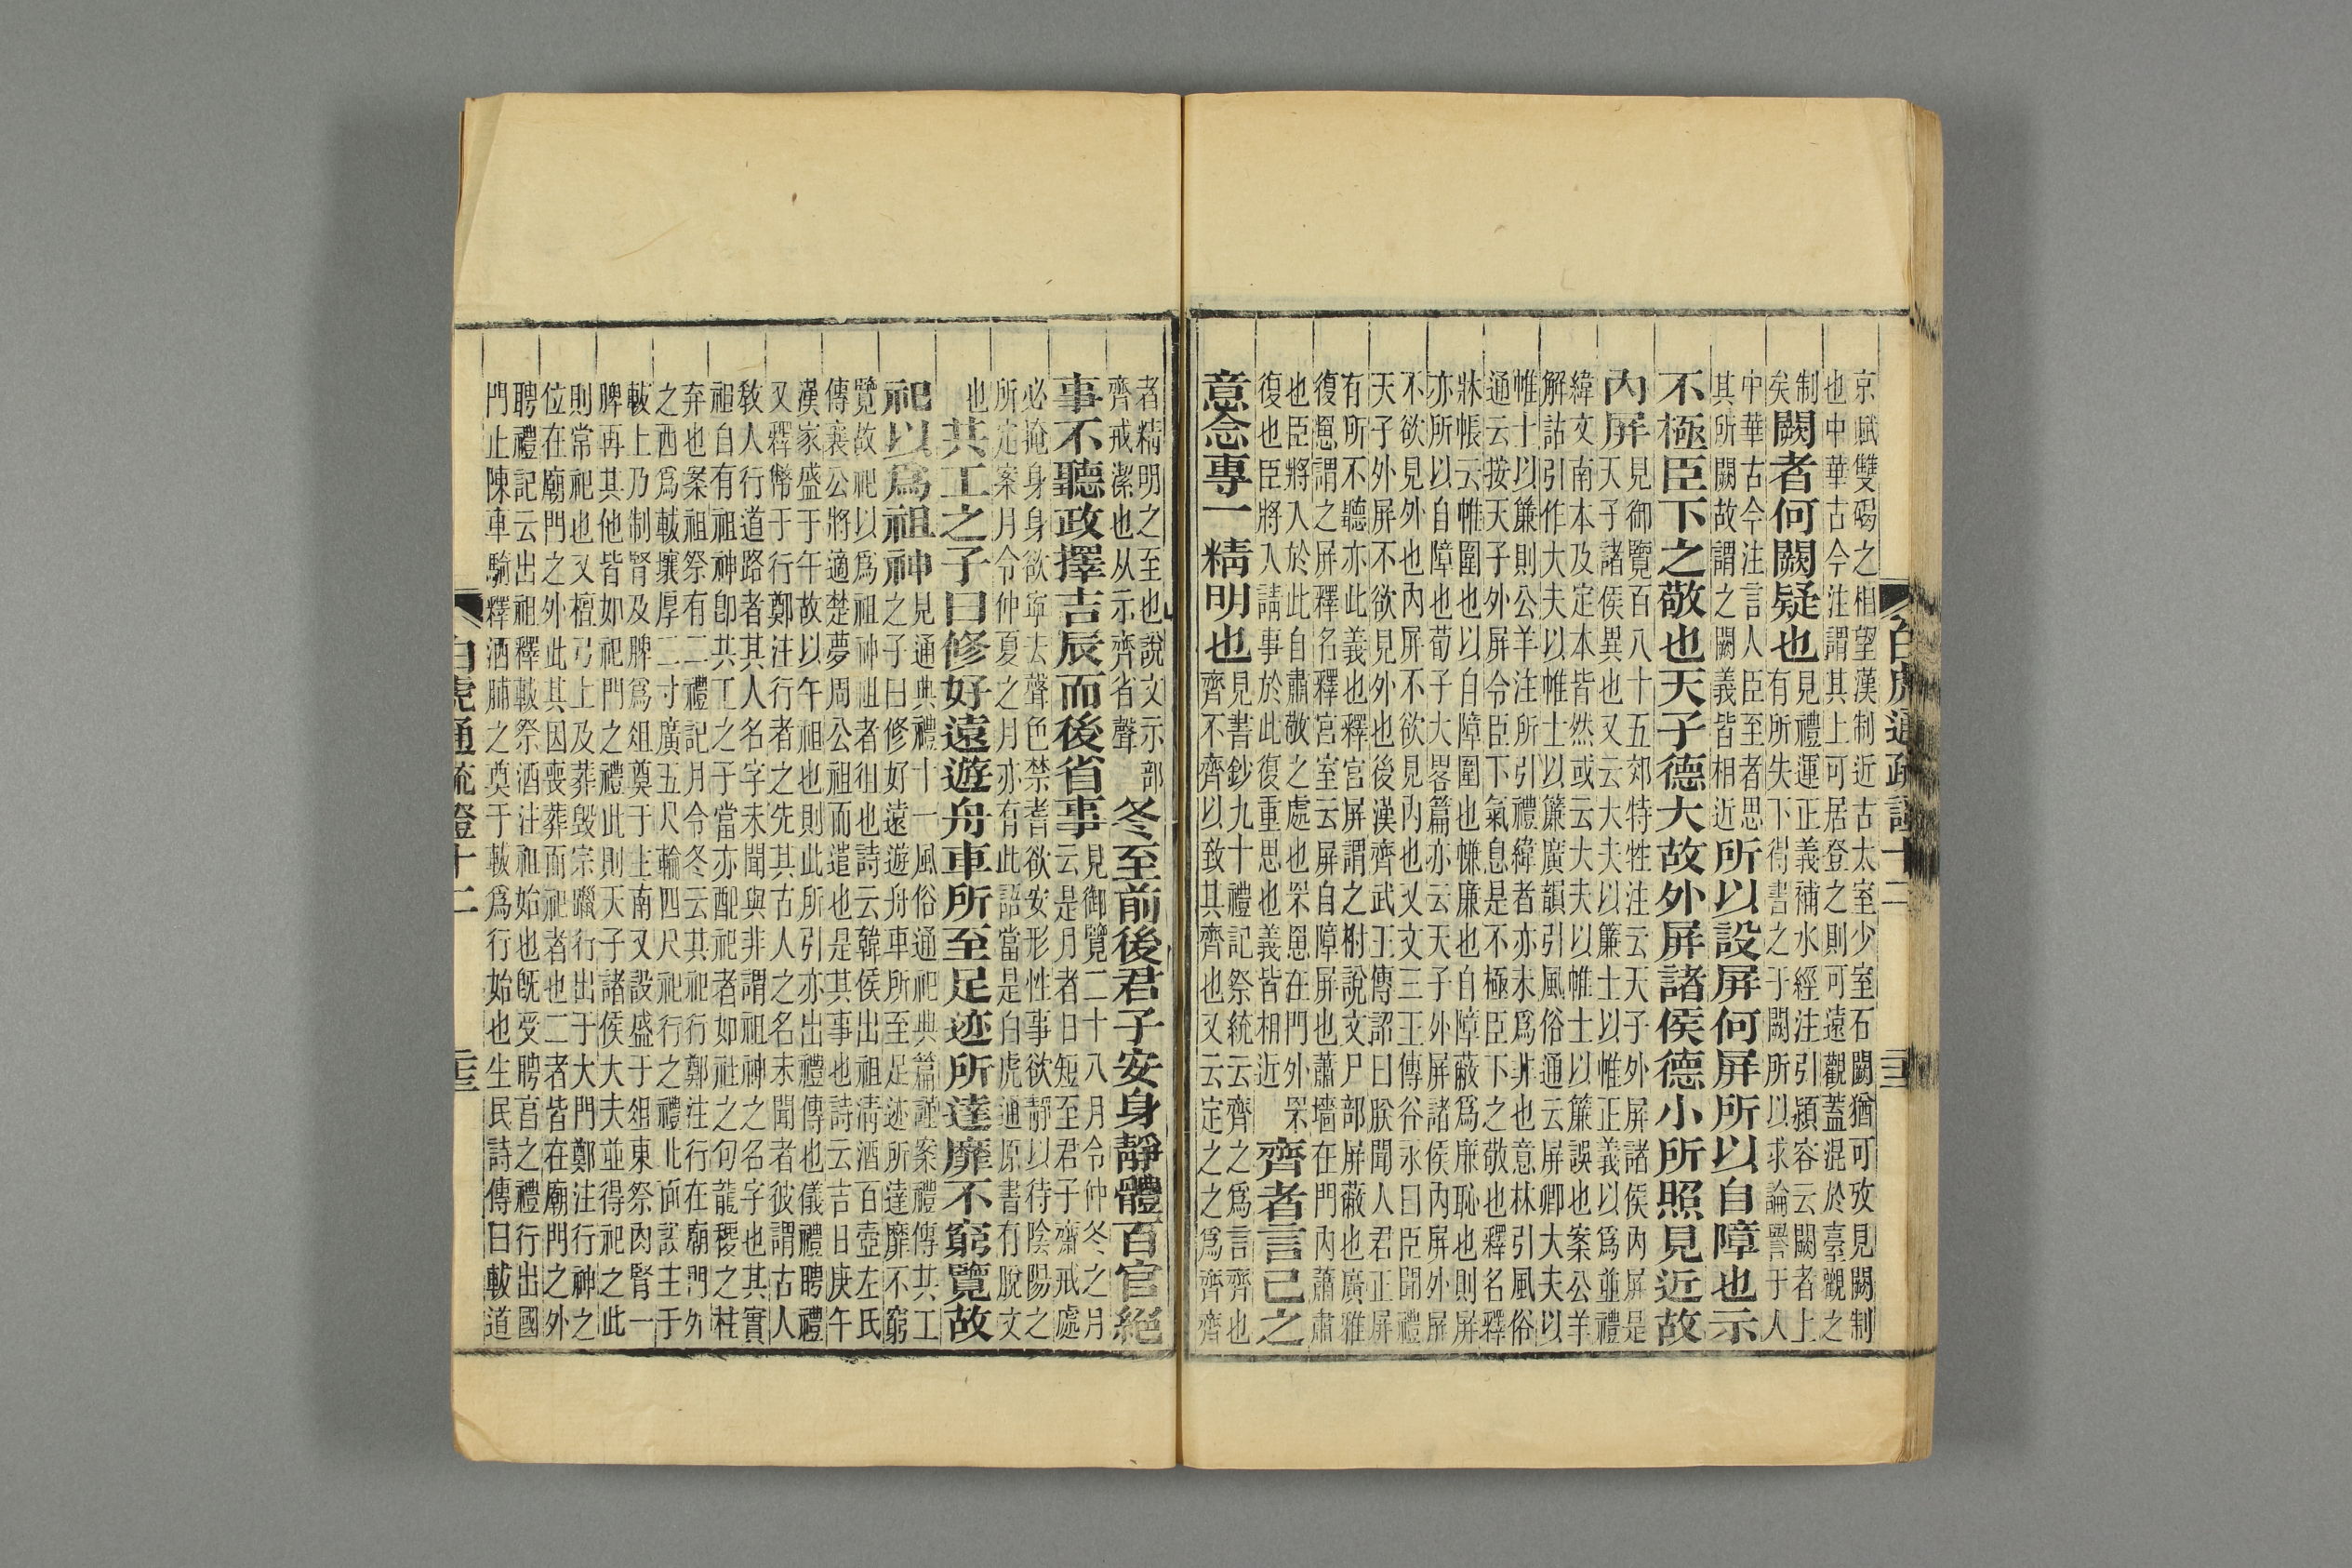 京賦雙碣之相望漢制近古太室少室石闕猶可攷見闕制
也中華古今注謂其上可居登之則可遠觀蓋混於臺觀之
制
矣
闕者何闕疑也
見禮運正義補水經注引潁容云闕者上
有所失下得書之于闕所以求論譽于人
中華古今注言人臣至者思
其所闕故謂之闕義皆相近
所以設屏何屏所以自障也示
不極臣下之敬也天子德大故外屏諸侯德小所照見近故
內屏
見御覽百八十五郊特牲注云天子外屏諸侯內屏是
天子諸侯異也又云大夫以簾士以帷正義以爲並禮
緯文南本及定本皆然或云大夫以帷士以簾誤也案公羊
解詁引作大夫以帷士以簾廣韻引風俗通云屏卿大夫以
帷士以簾則公羊注所引禮緯者亦未爲非也意林引風俗
通云按天子外屏令臣下氣息是不極臣下之敬也釋名釋
牀帳云帷圍也以自障圍也㡘廉也自障蔽爲廉恥也則屏
亦所以自障也荀子大畧篇亦云天子外屏諸侯內屏外屏
不欲見外也內屏不欲見內也又文三王傳谷永曰臣聞禮
天子外屏不欲見外也後漢齊武王傳詔曰朕聞人君正屏
有所不聽亦此義也釋宮屏謂之樹說文尸部屏蔽也廣雅
復罳謂之屏釋名釋宮室云屏自障屏也蕭墻在門內蕭肅
也臣將入於此自肅敬之處也罘罳在門外罘
復也臣將入請事於此復重思也義皆相近
齊者言己之
意念專一精明也
見書鈔九十禮記祭統云齊之爲言齊也
齊不齊以致其齊也又云定之之爲齊齊
者精明之至也說文示部
齊戒潔也从示齊省聲
冬至前後君子安身靜體百官絕
事不聽政擇吉辰而後省事
見御覽二十八月令仲冬之月
云是月者日短至君子齋戒處
必掩身身欲寧去聲色禁耆欲安形性事欲靜以待陰陽之
所定案月令仲夏之月亦有此語當是白虎通原書有脫文
也
共工之子曰修好遠遊舟車所至足迹所達靡不窮覽故
祀以爲祖神
見通典禮十一風俗通祀典篇謹案禮傳共工
之子曰修好遠遊舟車所至足迹所達靡不窮
覽故祀以爲祖神祖者徂也詩云韓侯出祖淸酒百壺左氏
傳襄公將適楚夢周公祖而遣也是其事也詩云吉日庚午
漢家盛于午故以午祖也則此所引亦出禮傳也儀禮聘禮
又釋幣于行鄭注行者之先其古人之名未聞者彼謂古人
敎人行道路者其人名字未聞與非謂祖神之名字也其實
祖自有祖神卽共工之子當亦配祀者如社之句龍稷之柱
弃也案祖祭有二禮記月令冬云其祀行鄭注行在廟門外
之西爲軷壤厚二寸廣五尺輪四尺祀行之禮北面設主于
軷上乃制腎及脾爲俎奠于主南又設盛于俎東祭肉腎一
脾再其他皆如祀門之禮此則天子諸侯大夫並得祀之此
則常祀也又檀弓上及葬毀宗躐行出于大門鄭注行神之
位在廟門之外此其因喪葬而祀者也二者皆在廟門之外
聘禮記云出祖釋軷祭酒注祖始也旣受聘言之禮行出國
門止陳車騎釋酒脯之奠于軷爲行始也生民詩傳曰軷道
白虎通疏證十二